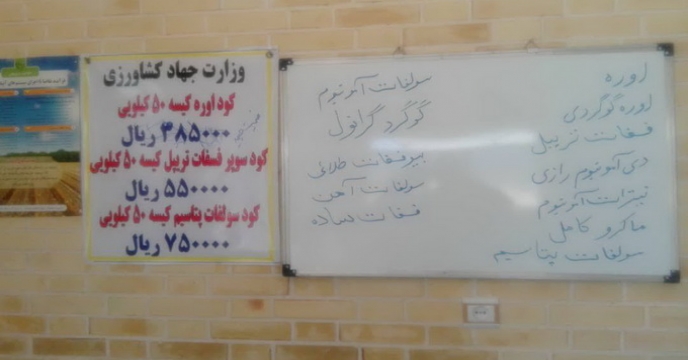 وزارت جهاد کشاورزی
کود اوره کیسه ۵۰ کیلویی
۳۸۵۰۰۰ ریال
کود سوپر فسفات تریپل کیسه ۵۰ کیلویی
۵۵۰۰۰۰ ریال
کود سولفات پتاسیم کیسه ۵۰ کیلویی
۷۵۰۰۰۰ ریال
اوره
اوره گوگردی
فسفات تریپل
دی آمونیوم رازی
نیترات آمونیوم
ماکرو کامل
سولفات پتاسیم
سولفات آمونیوم
گوگرد گرانول
بیوفسفات طلائی
سولفات آهن
فسفات ساده